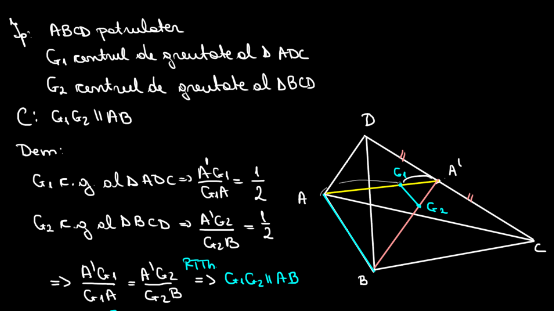 Ip: ABCD patrulater
G₁ centrul de greutate al Δ ADC
G₂ centrul de greutate al ΔBCD
C: G₁G₂ ∥ AB
Dem:
G₁ c.g al Δ ADC => A'G₁/G₁A = 1/2
G₂ c.g al Δ BCD => A'G₂/G₂B = 1/2
=> A'G₁/G₁A = A'G₂/G₂B RTTh => G₁G₂ ∥ AB
D
G₁
A'
A
G₂
C
B